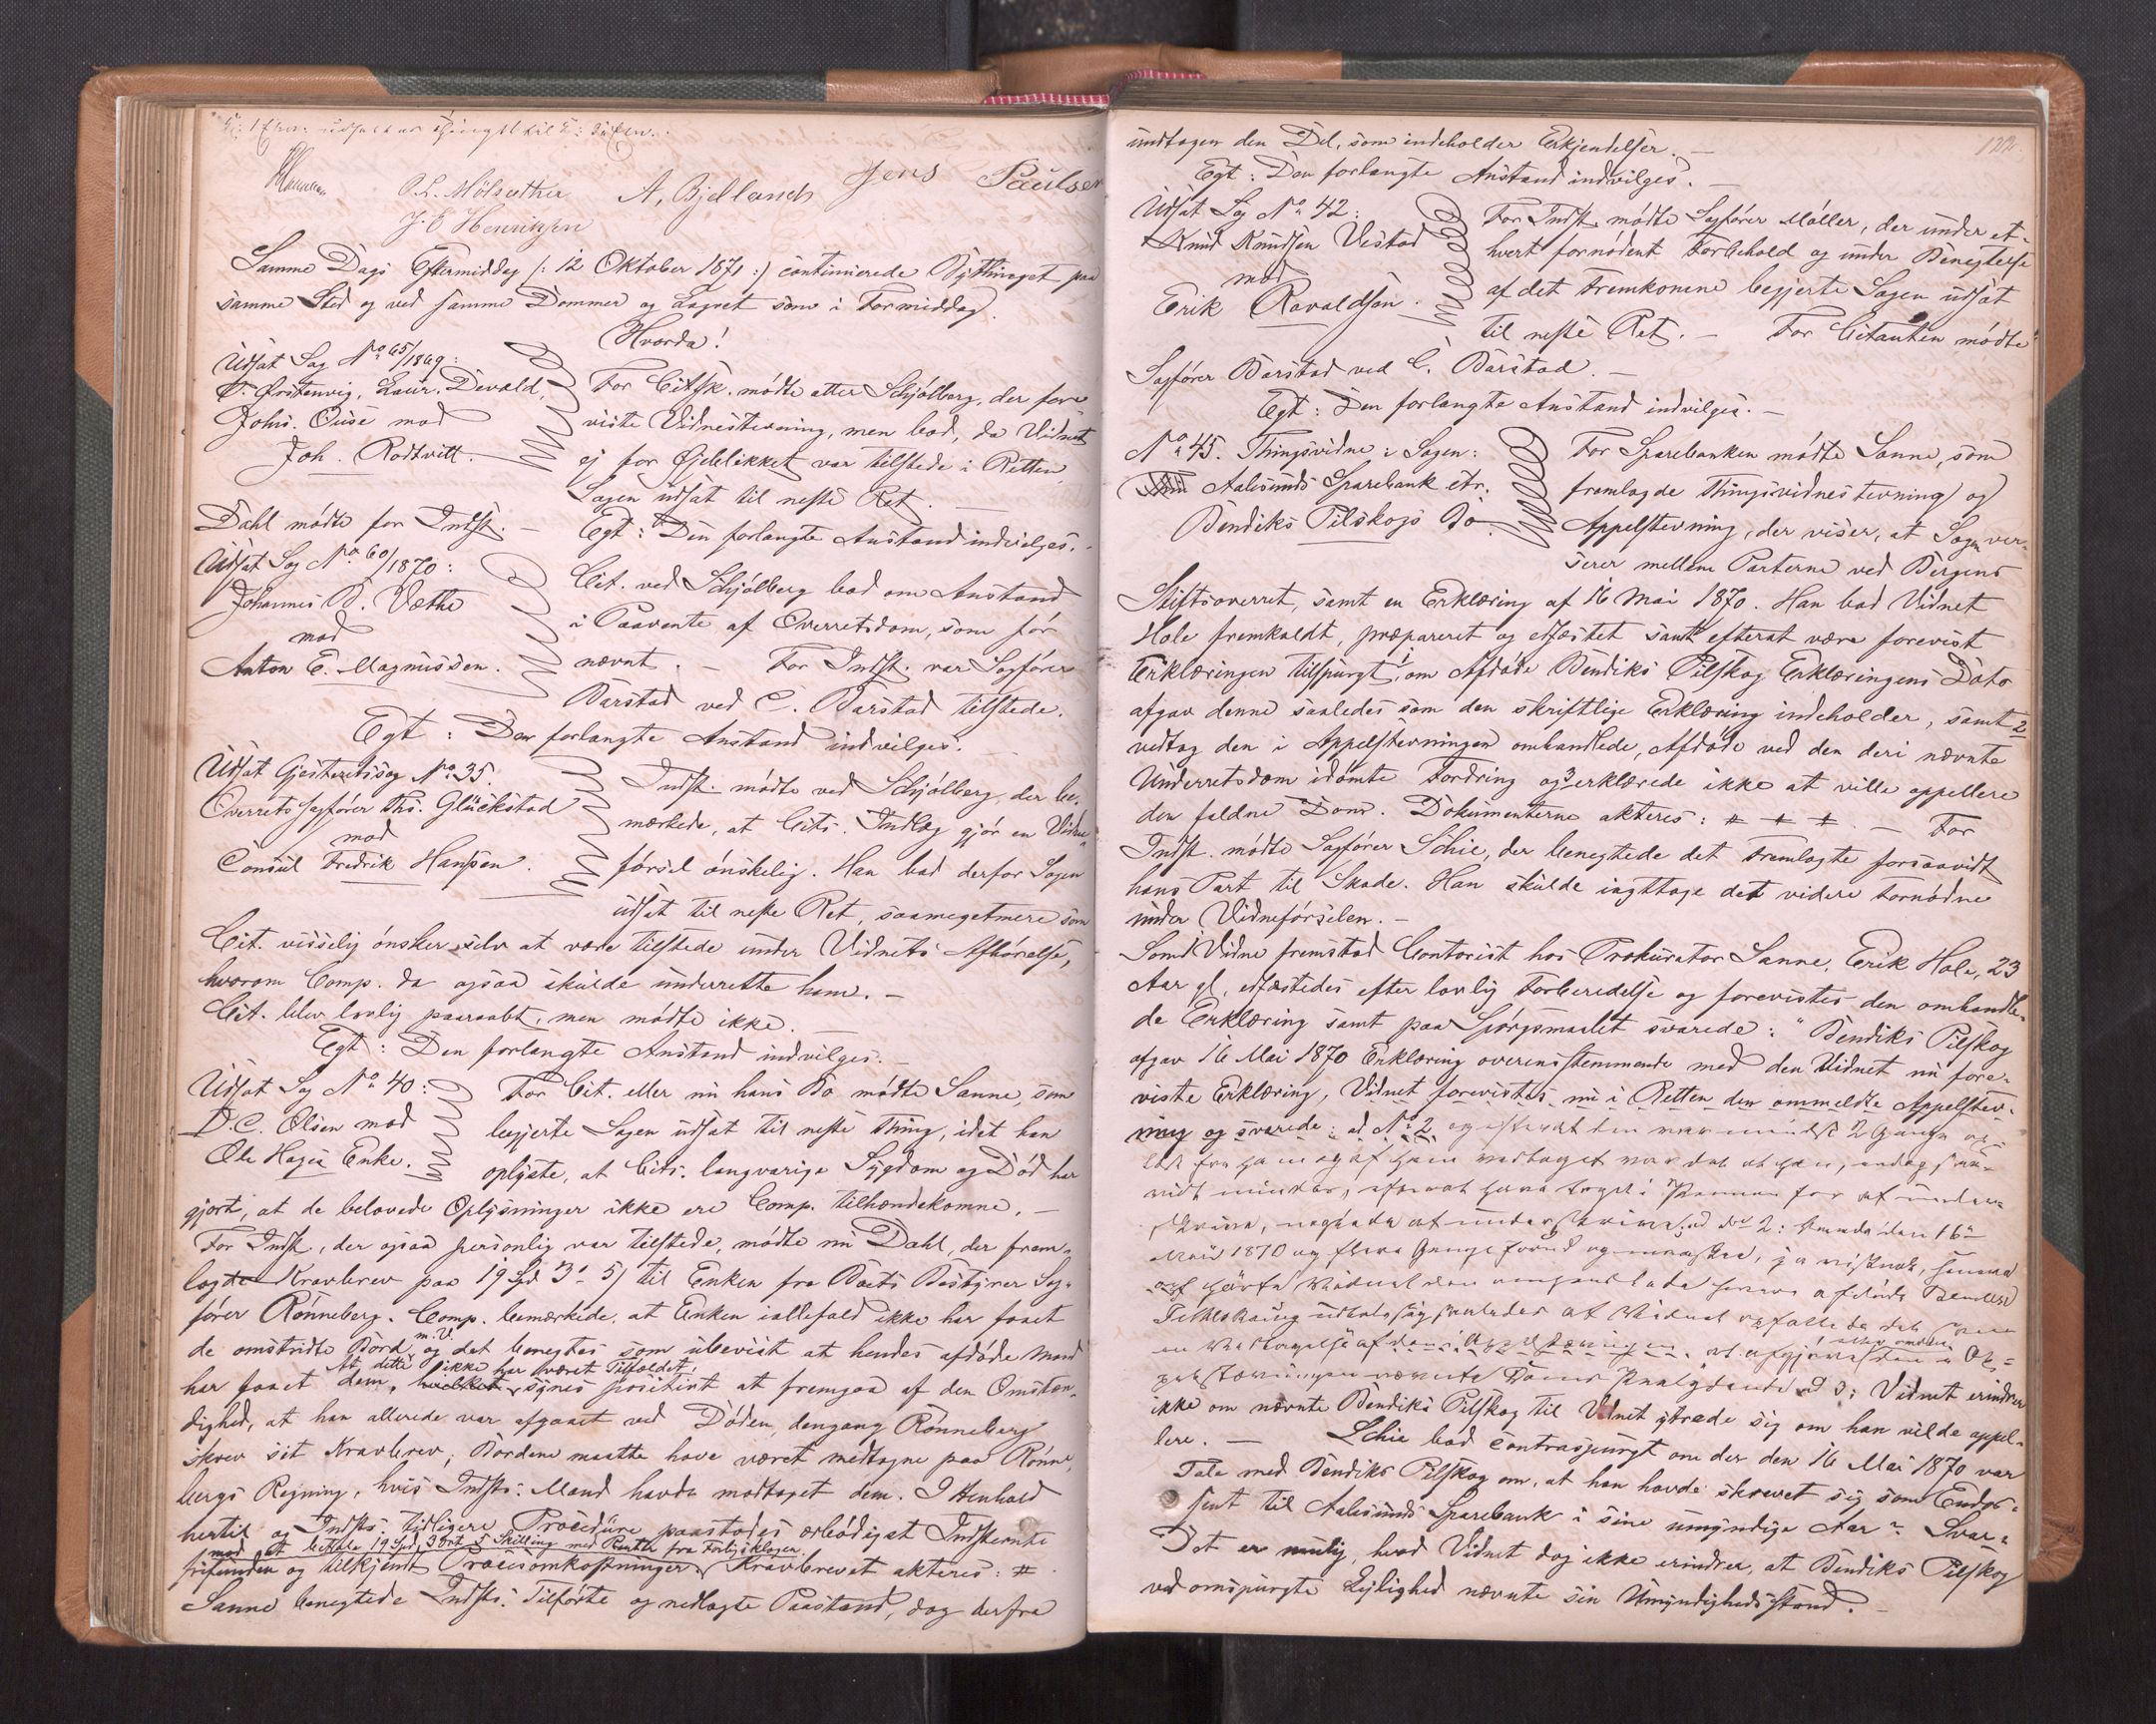 O. L. Mølsæther A. Bjelland Jens Paulsen
J. E. Henriksen
Samme Dags Eftermiddag (: 12 Oktober 1871 :) continuerede Bythinget paa
samme Sted og ved samme Dommer og Lagret som i Formiddag.
Hvorda!
Udsat Sag No 65/1869:
Laur. Devold,
Johs. Buse mod
Joh. Rødtvitt.
For Citsk. mødte atter Schjølberg, der fore
viste Vidnestevning, men bad, da Vidnet
ej for Øjeblikket var tilstede i Retten,
Sagen udsat til neste Ret.
Dahl mødte for Indst. —
Egt: Den forlangte Anstand indvilges.
Udsat Sag No 60/1870:
Johannes B. Vatte
mod
Anton E. Magnussen.
Cit. ved Schjølberg bad om Anstand
i Paavente af Overretsdom, som før
nævnt. — For Indst. var Sagfører
Barstad ved C. Barstad tilstede.
Egt: Den forlangte Anstand indvilges. —
Udsat Gjesteretssag No 35.
Overretssagfører Ths. Glückstad
mod
Consul Fredrik Hansen.
Indst. mødte ved Schjølberg, der be-
mærkede, at Cits. Indlæg gjør en Vidne
førsel ønskelig. Han bad derfor Sagen
udsat til neste Ret, saameget mere som
Cit. visselig ønsker selv at være tilstede under Vidnets Afhørelse,
hvorom Comp. da ogsaa skulde underrette ham. —
Cit. blev lovlig paaraabt, men mødte ikke. —
Egt: Den forlangte Anstand indvilges. —
Udsat Sag No 40:
D. C. Olsen mod
Ole Hagis Enke.
For Cit. eller nu hans Bo mødte Sanne, som
begjerte Sagen udsat til neste Thing, idet han
oplyste, at Cits. langvarige Sygdom og Død har
gjort, at de belovede Oplysninger ikke ere Comp. tilhændekomne. —
For Indst., der ogsaa personlig var tilstede, mødte nu Dahl, der frem-
lagde Kravbrev paa 19 Spd 3 " 5 s til Enken fra Boets Bestyrer Sag-
fører Rønneberg. Comp. bemærkede, at Enken iallefald ikke har faaet
de omstridte Bord m. V. og det benegtes som ubevist at hendes afdøde Mand
har faaet dem. At dette ikke har været Tilfældet, hvilket synes positivt at fremgaa af den Omstæn-
dighed, at han allerede var afgaaet ved Døden, dengang Rønneberg
skrev sit Kravbrev; Bordene maatte have været medtagne paa Rønne-
bergs Regning, hvis Indsts. Mand havde modtaget dem. I Henhold
hertil og Indsts. tidligere Procedure paastodes ærbødigst Indstevnte
mod at betale 19 Spd 3 Ort 5 Skilling med Renter fra Forligsklagen
frifunden og tilkjendt Procesomkostninger. Kravbrevet akteres: #
Sanne benegtede Indsts. Tilførte og nedlagte Paastand, dog derfra
122.
undtagen den Del, som indeholder Erkjendelser. —
Egt: Den forlangte Anstand indvilges. —
Udsat Sag No 42:
Knud Knudsen Vestad
mod
Erik Ravaldsen.
For Indst. mødte Sagfører Møller, der under et-
hvert fornødent Forbehold og under Benegtelse
af det Fremkomne begjerte Sagen udsat
til neste Ret. — For Citanten mødte
Sagfører Barstad ved C. Barstad. —
Egt: Den forlangte Anstand indvilges. —
No 45. Thingsvidne i Sagen:
Aalesunds Sparebank ctr.
Bendiks Pilskogs Bo.
For Sparebanken mødte Sanne, som
fremlagde Thingsvidnestevning og
Appelstevning, der viser, at Sagen ver-
serer mellem Parterne ved Bergens
Stiftsoverret, samt en Erklæring af 16 Mai 1870. Han bad Vidnet
Hole fremkaldt, præpareret og edfæstet samt efterat være forevist
Erklæringen tilspurgt: 1 om Afdøde Bendiks Pilskog Erklæringens Dato
afgav denne saaledes som den skriftlige Erklæring indeholder, samt 2
vedtog den i Appelstevningen omhandlede, Afdøde ved den deri nævnte
Underretsdom idømte Fordring og 3 erklærede ikke at ville appellere
den faldne Dom. Dokumenterne akteres: # # # — For
Indst. mødte Sagfører Schie, der benegtede det Fremlagte forsaavidt
hans Part til Skade. Han skulde iagttage det videre Fornødne
under Vidneførselen. —
Som Vidne fremstod Contorist hos Prokurator Sanne, Erik Hole, 23
Aar gl., edfæstedes efter lovlig Forberedelse og forevistes den omhandle-
de Erklæring samt paa Spørgsmaalet svarede: "Bendiks Pilskog
afgav 16 Mai 1870 Erklæring overensstemmende med den Vidnet nu fore-
viste Erklæring, Vidnet forevistes nu i Retten den ommeldte Appelstev-
ning og svarede: ad No 2 og efterat den var mindst 2 Gange op-
læst for ham og af ham vedtaget var det at han, endog saa-
vidt mindes, efterat have taget i Pennen for at under-
skrive, negtede at underskrive; ad No 2: baade den 16de
Mai 1870 og flere Gange forud og maaske, ja vistnok, senere
Pilskog udtale sig saaledes at Vidnet opfattede det som
en Vedtagelse af den i Appelstevningen
pelstevningen nævnte Doms Paalydende ad 3: Vidnet erindrer
ikke om nævnte Bendiks Pilskog til Vidnet ytrede sig om han vilde appel-
lere. — Schie bad contraspurgt om der den 16 Mai 1870 var
Tale med Bendiks Pilskog om, at han havde skrevet sig som Endos-
sent til Aalesunds Sparebank i sine umyndige Aar? Svar:
Det er mulig, hvad Vidnet dog ikke erindrer, at Bendiks Pilskog
ved omspurgte Lejlighed nævnte sin Umyndighedsstand. —